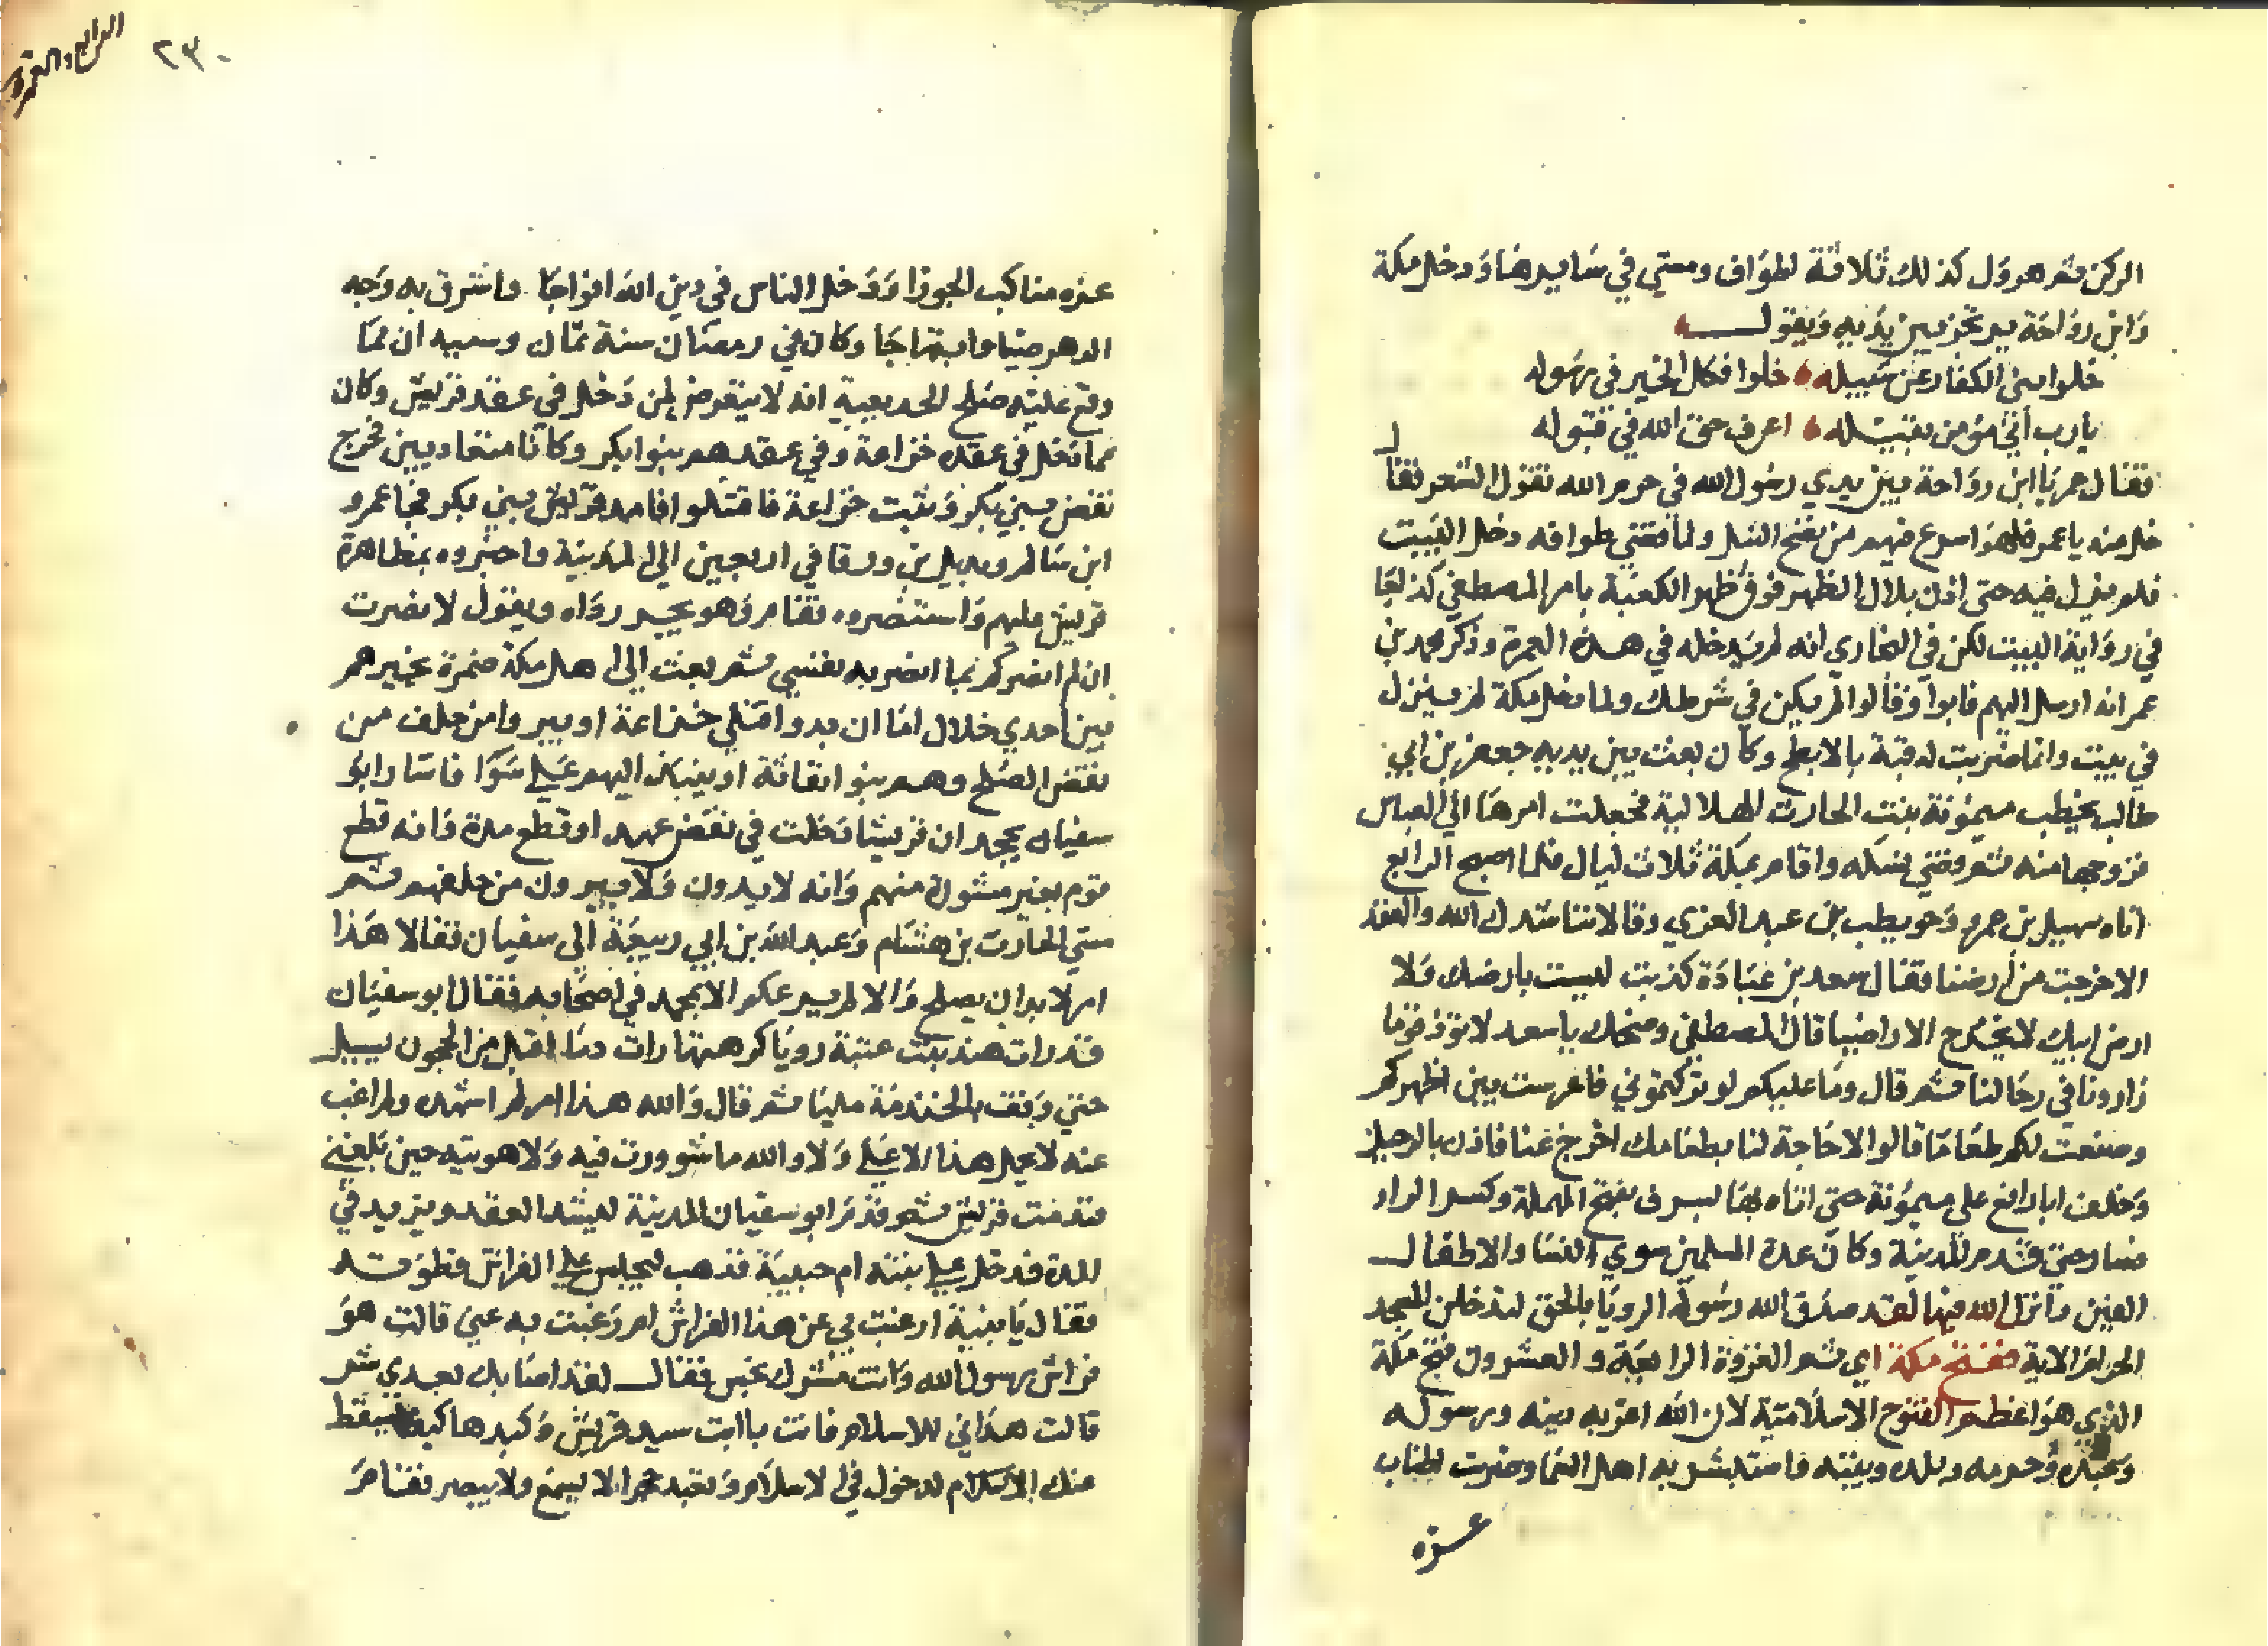 الركن ثم هرول كذلك ثلاثة اطواف ومشي في سايرها ودخل مكة
وابن رواحة يرتجز بين يديه ويقول
خلوا بني الكفار عن سبيله خلوا فكل الخير في رسوله
يا رب اني مؤمن بقيله اعرف حق الله في قبوله
فقال عمر يا ابن رواحة بين يدي رسول الله في حرم الله تقول الشعر فقال
خل عنه يا عمر فلهو اسرع فيهم من نضح النبل ولما قضي طوافه دخل البيت
فلم يزل فيه حتى اذن بلال الظهر فوق ظهر الكعبة بامر المصطفي كذا جا
في رواية البيت لكن في البخاري انه لم يدخله في هذه العمرة وذكر محمد بن
عمر انه ارسل اليهم فابوا وقالوا لم يكن في شرطك ولما دخل مكة لم ينزل
في بيت وانما ضربت له قبة بالابطح وكان بعث بين يديه جعفر بن ابي
طالب يخطب ميمونة بنت الحارث الهلالية فجعلت امرها الي العباس
فزوجها منه ثم قضي نسكه واقام بمكة ثلاث ليال فلما اصبح الرابع
اتاه سهيل بن عمرو وحويطب بن عبد العزي وقالا نناشدك الله والعقد
الا خرجت من ارضنا فقال سعد بن عبادة كذبت ليست بارضك ولا
ارض ابيك لا يخرج الا راضيا قال المصطفي وضحك يا سعد لا تؤذ قوما
زارونا في رحالنا ثم قال وما عليكم لو تركتموني فاعرست بين اظهركم
وصنعت لكم طعاما قالوا لا حاجة لنا بطعامك اخرج عنا فاذن بالرحيل
وخلف ابا رافع على ميمونة حتى اتاه بها بسرف بفتح المهملة وكسر الرا
فسار حتى قدم المدينة وكان عدة المسلمين سوي النسا والاطفال
الفين وانزل الله فيها لقد صدق الله رسوله الرويا بالحق لتدخلن المسجد
الحرام الاية ففتح مكة اي ثم الغزوة الرابعة والعشرون فتح مكة
الذي هو اعظم الفتوح الاسلامية لان الله اعز به دينه ورسوله
وعبده وحرمه وبلده وبيته فاستبشر به اهل السما وضربت اطناب
عزه
الرابع والعشرون
٢٣٠
عزه مناكب الجوزا ودخل الناس في دين الله افواجا واشرق به وجه
الدهر ضيا وابتهاجا وكان في رمضان سنة ثمان وسببه ان مما
وقع عليه صلح الحديبية انه لا يتعرض لمن دخل في عقد قريش وكان
مما دخل في عقده خزاعة وفي عقدهم بنوا بكر وكانا متعاديين فخرج
نفر من بني بكر وثبت خزاعة فاقتتلوا فامد قريش بني بكر فجا عمرو
ابن سالم وبديل بن ورقا في اربعين الي المدينة واخبروه بمظاهرة
قريش عليهم واستنصروه فقام وهو يجر رداه ويقول لا نصرت
ان لم انصركم بما انصر به نفسي ثم بعث إلى اهل مكة ضمرة يخيرهم
بين احدي خلال اما ان يدوا قتلي خزاعة او يبروا من حلف من
نقض الصلح وهم بنوا نفاثة او ينبذ اليهم علي سوا فاشار ابو
سفيان بجحد ان قريشا دخلت في نقض عهد او قطع مدة وانه قطع
قوم بغير مشورة منهم وانه لا يدون ولا يبرون من حلفهم ثم
مشي الحارث بن هشام وعبد الله بن ابي ربيعة الي سفيان فقالا هذا
امر لا بد ان يصلح والا لم يرعكم الا محمد في اصحابه فقال ابو سفيان
قد رات هند بنت عتبة رويا كرهتها رات دما اقبل من الحجون يسيل
حتي وقف بالخندمة مليا ثم قال والله هذا امر لم اشهده ولم اغب
عنه لا يحمل هذا الا علي ولا والله ما شوورت فيه ولا هويته حين بلغني
فقدمت قريش ثم قدم ابو سفيان المدينة ليشد العقد ويزيد في
المدة فدخل علي بنته ام حبيبة فذهب ليجلس علي الفراش فطوته
فقال يا بنية ارغبت بي عن هذا الفراش ام رغبت به عني قالت هو
فراش رسول الله وانت مشرك نجس فقال لقد اصابك بعدي شر
قالت هداني للاسلام فانت يا ابت سيد قريش وكبيرها كيف يسقط
عنك الاسلام لدخول في الاسلام وتعبد حجرا لا يسمع ولا يبصر فقام